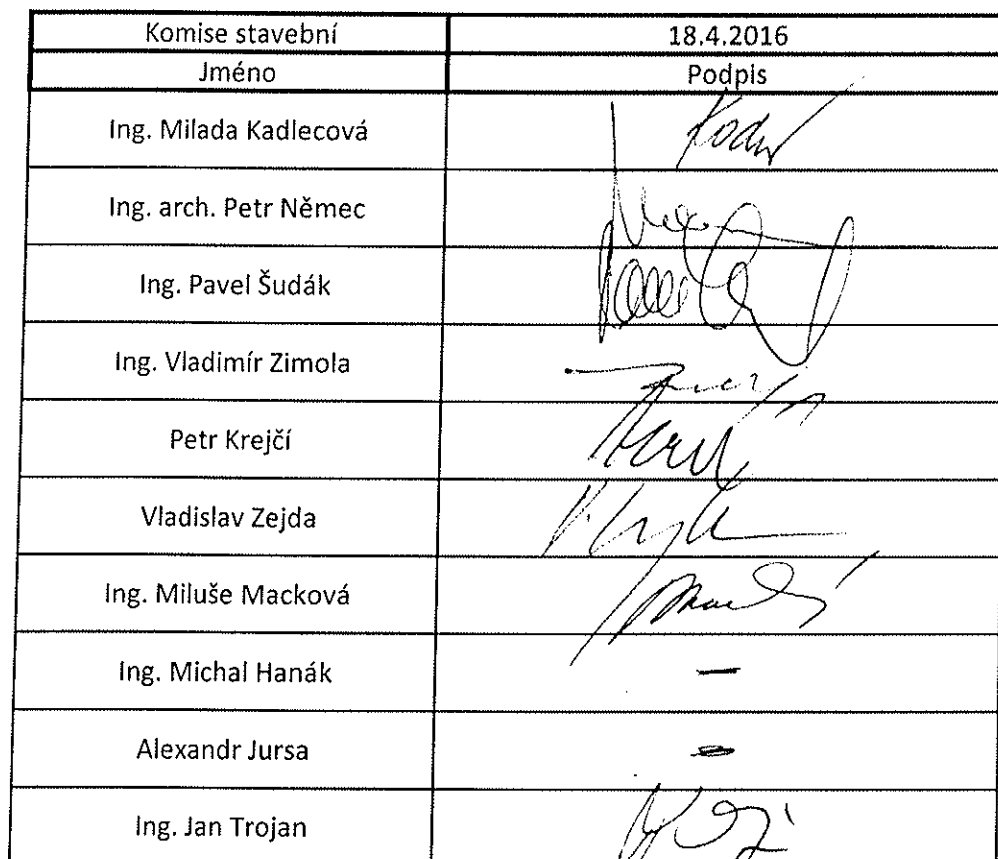 Komise stavební 18.4.2016
Jméno Podpis
Ing. Milada Kadlecová
Ing. arch. Petr Němec
Ing. Pavel Šudák
Ing. Vladimír Zimola
Petr Krejčí
Vladislav Zejda
Ing. Miluše Macková
Ing. Michal Hanák –
Alexandr Jursa
Ing. Jan Trojan